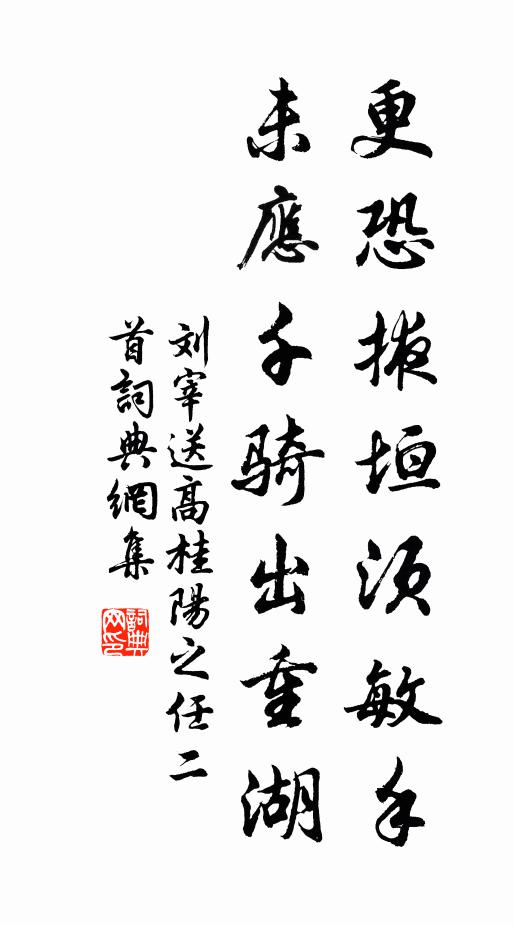 更恐掖垣須敏手
未應千騎出重湖
刘宰送高桂陽之任二
首詞典網集
詞典
网印